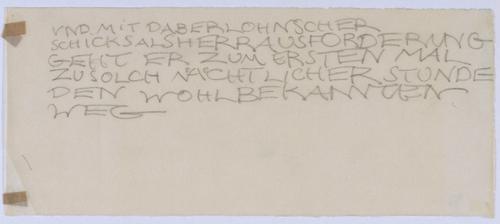 VND MIT DABERLOHNSCHER
SCHICKSALSHERRAUSFORDERUNG
GEHT ER ZUM ERSTEN MAL
ZU SOLCH NÄCHTLICHER STUNDE
DEN WOHLBEKANNTEN
WEG